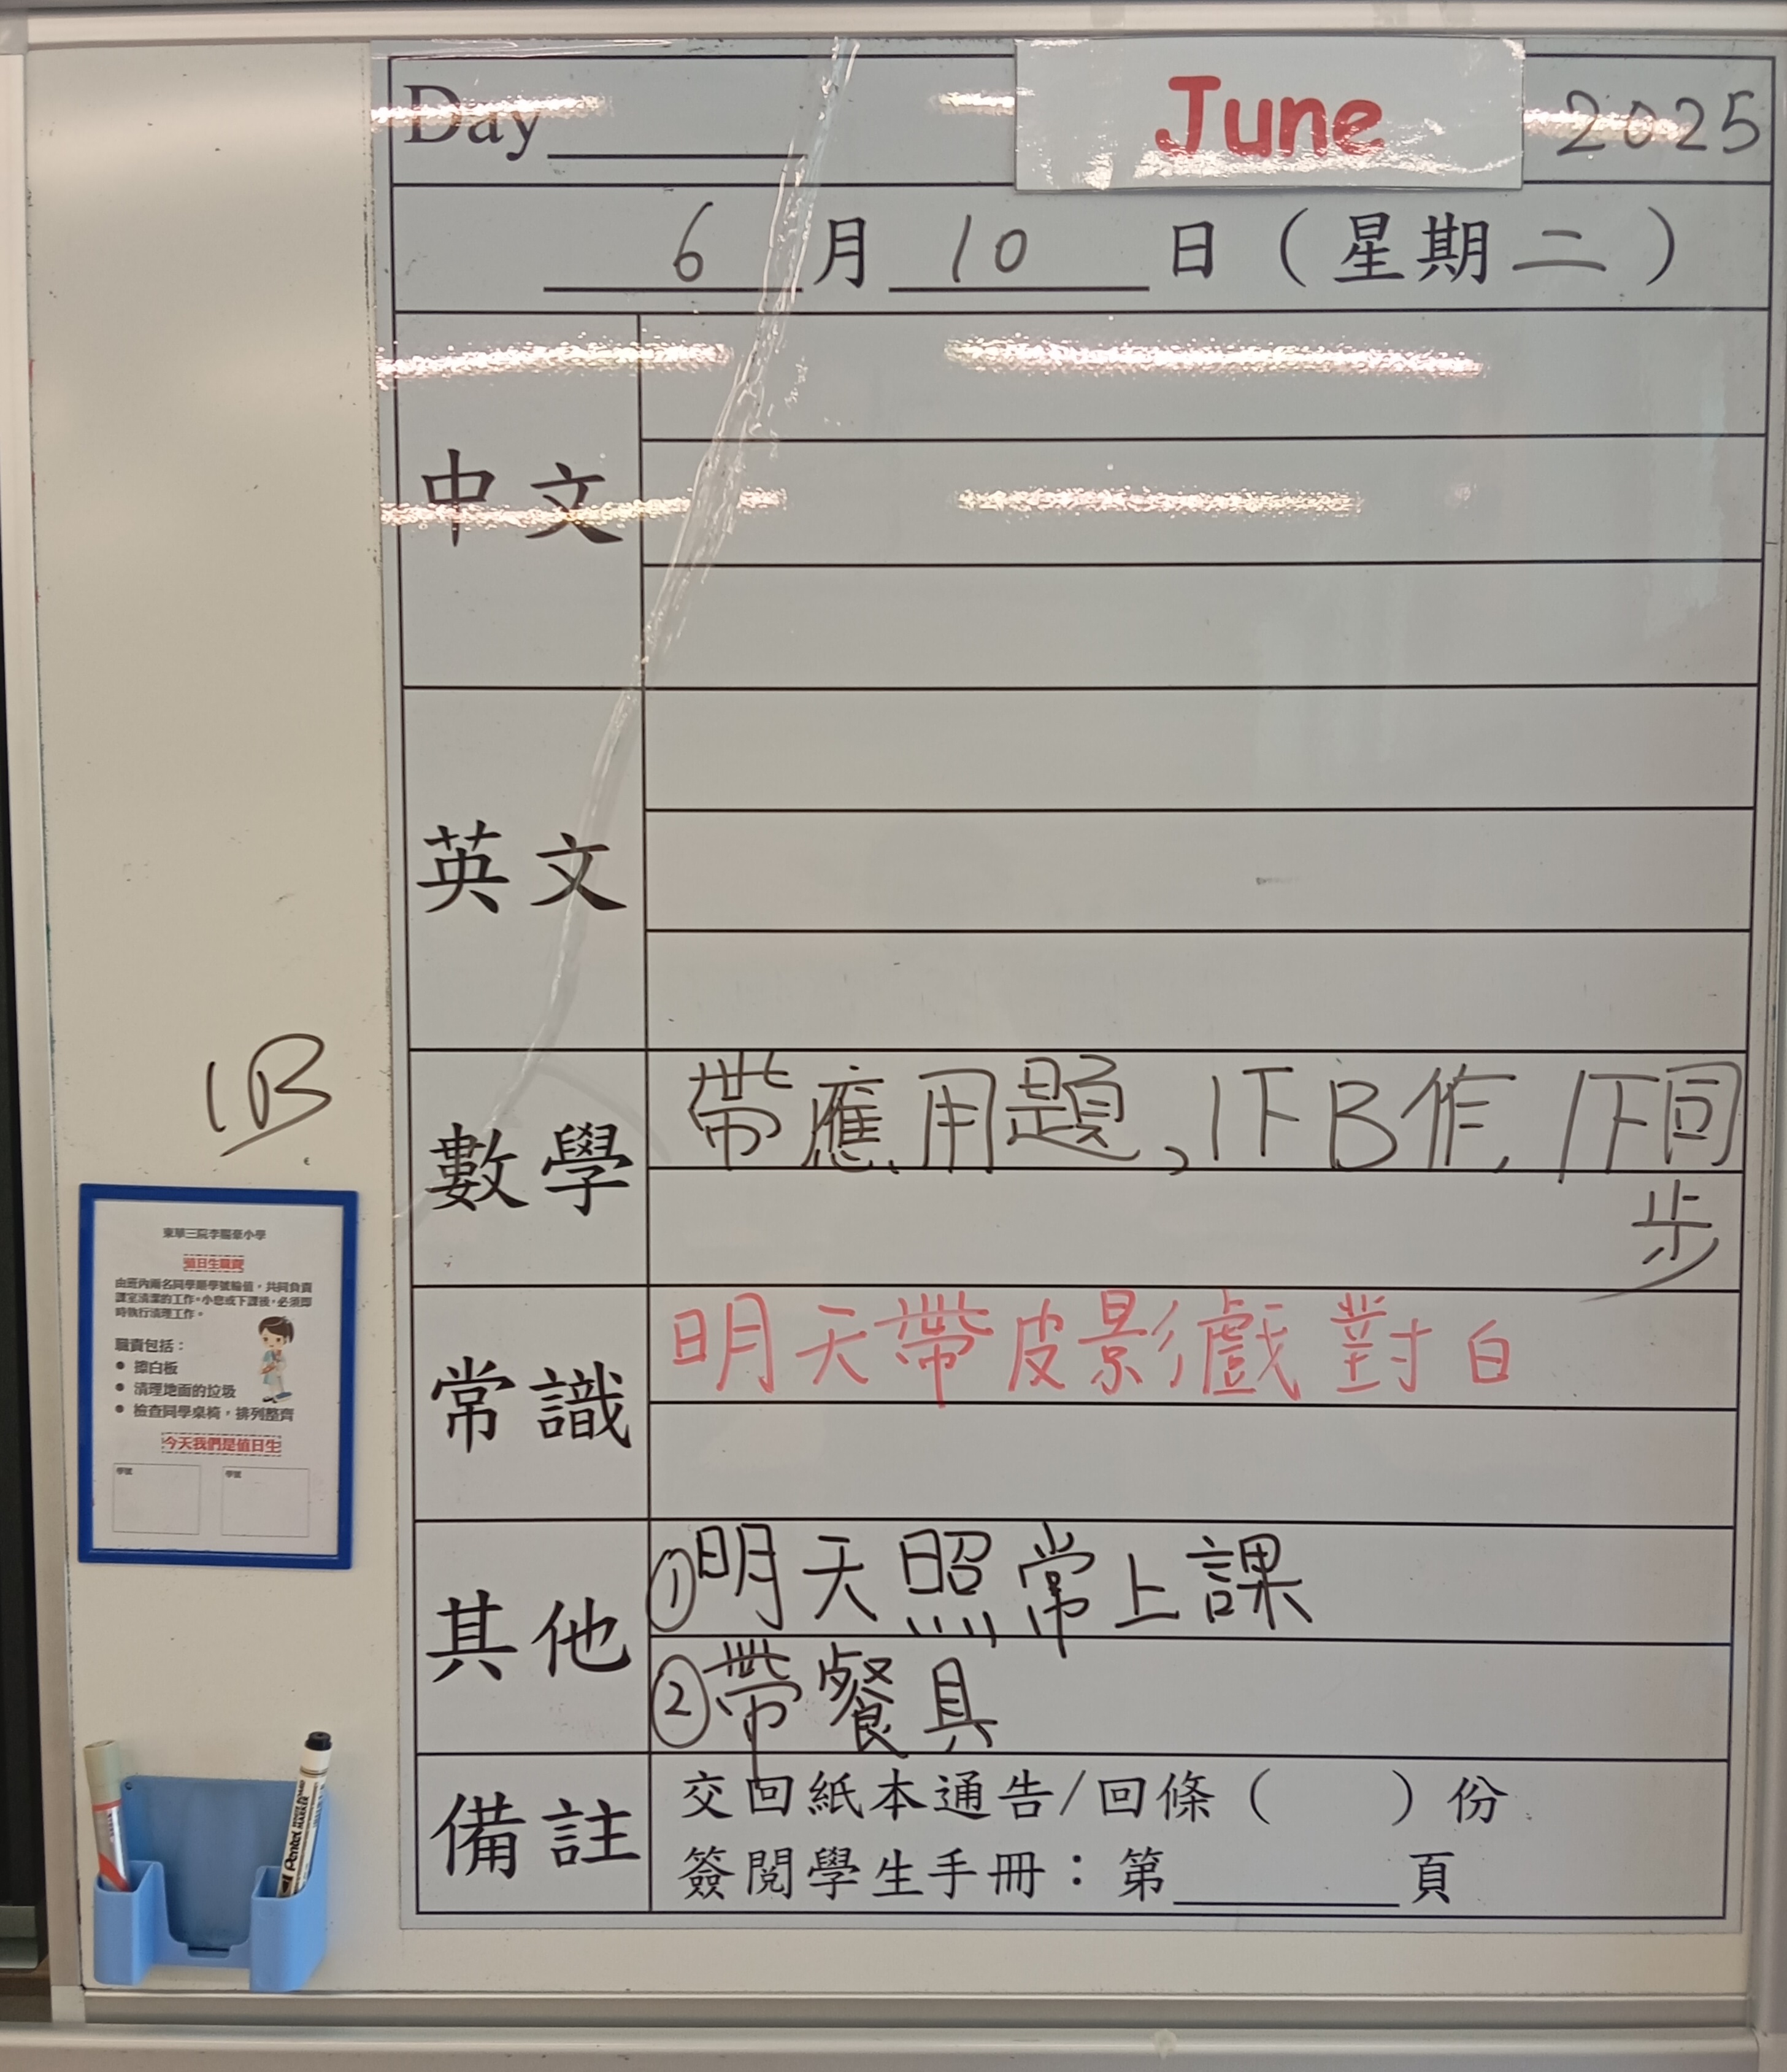 Day
June 2025
6月10日（星期二）
中文
英文
數學
帶應用題，1下B作，1下同
步
常識
明天帶皮影戲對白
其他
①明天照常上課
②帶餐具
備註
交回紙本通告/回條（ ）份
簽閱學生手冊：第 頁
1B
東華三院李賜豪小學
值日生職責
由班內兩名同學順學號輪值，共同負責
課室清潔的工作。小息或下課後，必須即
時執行清理工作。
職責包括：
● 擦白板
● 清理地面的垃圾
● 檢查同學桌椅，排列整齊
今天我們是值日生
學號 學號
Pentel
MARKER